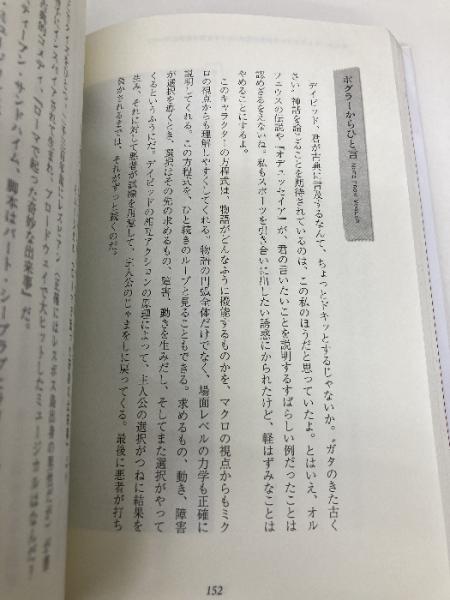 ボグラーからひと言 NOTE FROM VOGLER
デイビッド、君が古典に言及するなんて、ちょっとドキッとするじゃないか。“ガタのきた古く
さい”神話を論ごることを期待されているのは、この私のほうだと思っていたよ。とはいえ、オル
フェウスの伝説や『オデュッセイア』が、君の言いたいことを説明するすばらしい例だったことは
認めざるをえないね。私もスポーツを引き合いに出したい誘惑にかられたけど、軽はずみなことは
やめることにするよ。
このキャラクターの方程式は、物語がどんなふうに機能するものかを、マクロの視点からもミク
ロの視点からも理解しやすくしてくれる。物語の円弧全体だけでなく、場面レベルの力学も正確に
説明してくれる。この方程式を、ひと続きのループと見ることもできる。求めるもの、動き、障害
が選択を導くとき、選択はその先の求めるもの、障害、動きを生みだし、そしてまた選択がやって
くるというふうにだ。デイビッドの相互アクションの原理によって、主人公の選択がつねに結果を
生み、それに対して悪者が試練を用意して、主人公のじゃまをしに戻ってくる。最後に悪者が打ち
負かされるまでは、それがずっと続くのだ。
152